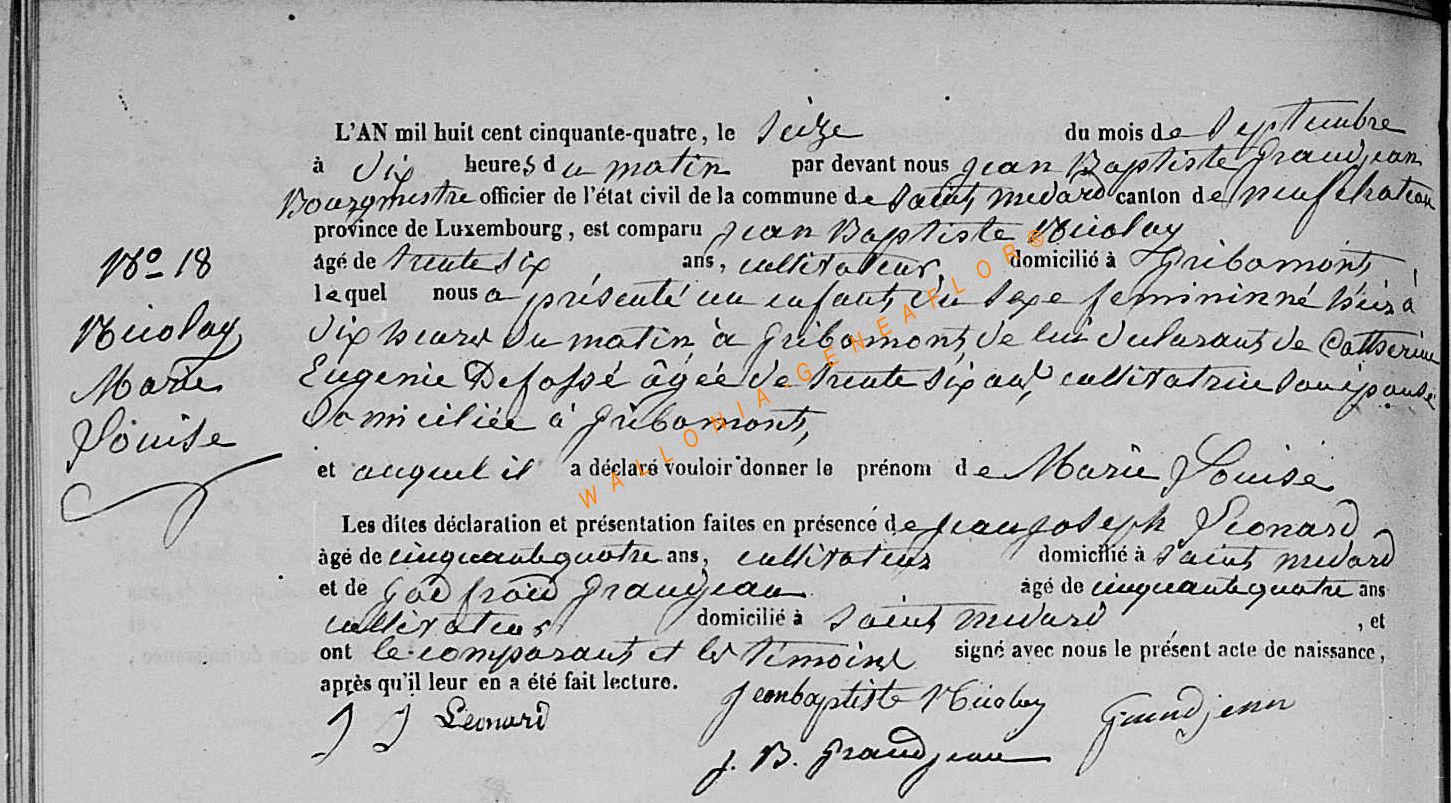 L'AN mil huit cent cinquante-quatre, le Seize du mois de Septembre
à Six heures du matin par devant nous Jean Baptiste Grandjean
Bourgmestre officier de l'état civil de la commune de Saint Medard canton de neufchateau
province de Luxembourg, est comparu Jean Baptiste Nicolay
âgé de trente six ans, cultivateur, domicilié à Gribomont,
lequel nous a présenté un enfant du sexe feminin né hier à
dix heures du matin à Gribomont, de lui déclarant de Catherine
Eugenie Defossé âgée de trente six ans, cultivatrice son épouse
Domiciliée à Gribomont,
et auquel il a déclaré vouloir donner le prénom de Marie Louise
Les dites déclaration et présentation faites en présence de Jean Joseph Léonard
âgé de cinquante quatre ans, cultivateur domicilié à Saint Medard
et de Godfroid Grandjean âgé de cinquante quatre ans
cultivateur domicilié à Saint Medard, et
ont le comparant et les témoins signé avec nous le présent acte de naissance,
après qu'il leur en a été fait lecture.
J J Léonard
Jeanbaptiste Nicolay
Grandjean
J. B. Grandjean
No 18
Nicolay
Marie
Louise
WALLONIA-GENEAFLOR®